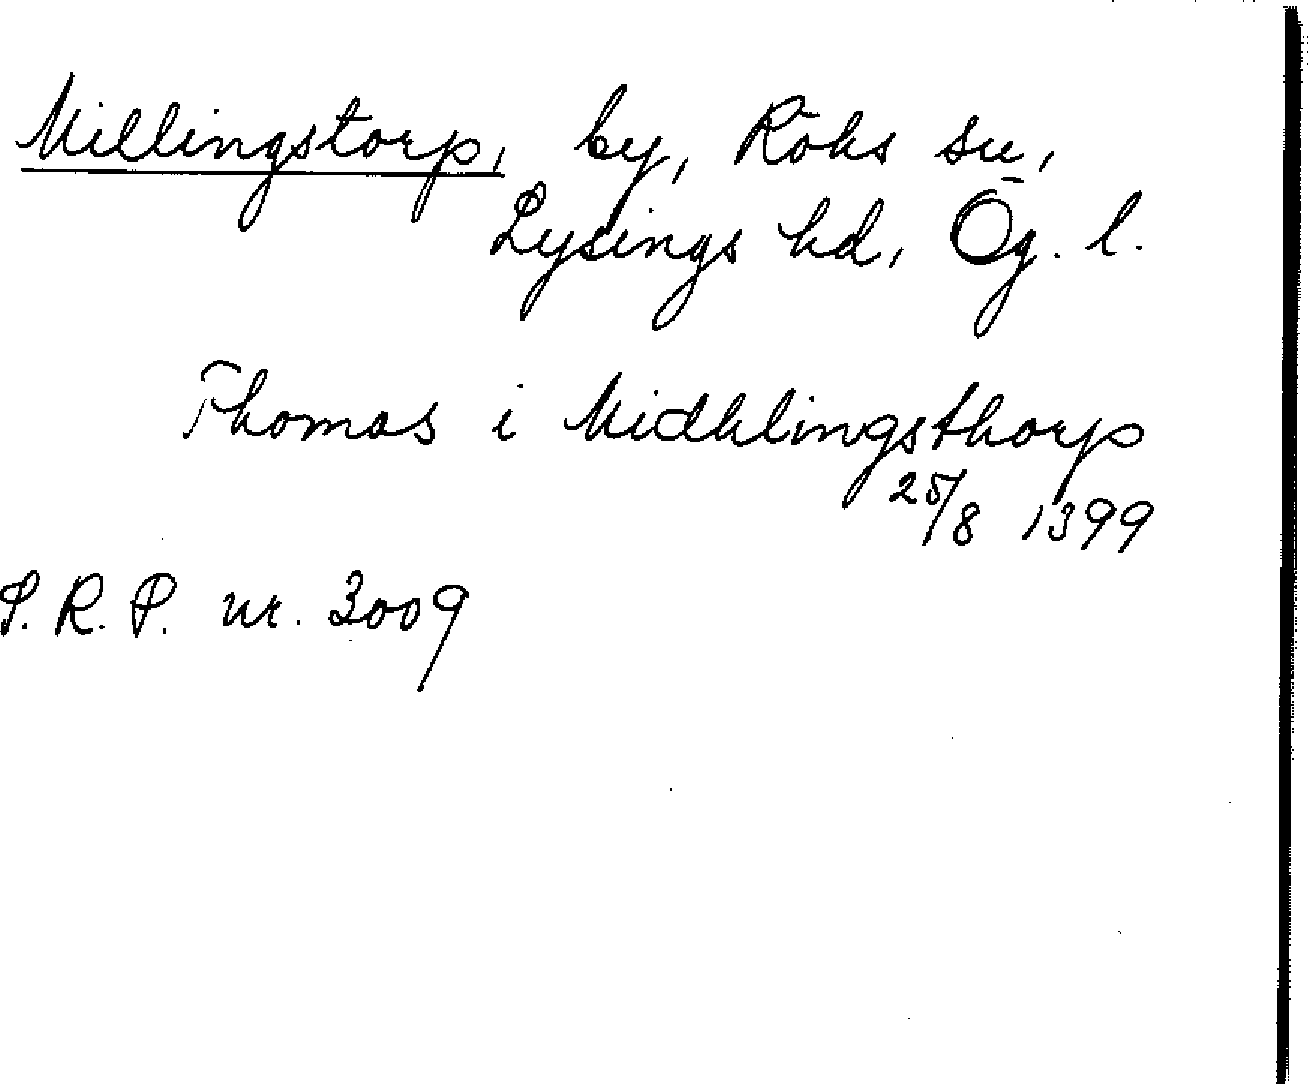 Millingstorp, by, Röks sn,
Lysings hd, Ög. l.
Thomas i Midhlingsthorp
25/8 1399
S.R.P. nr. 3009